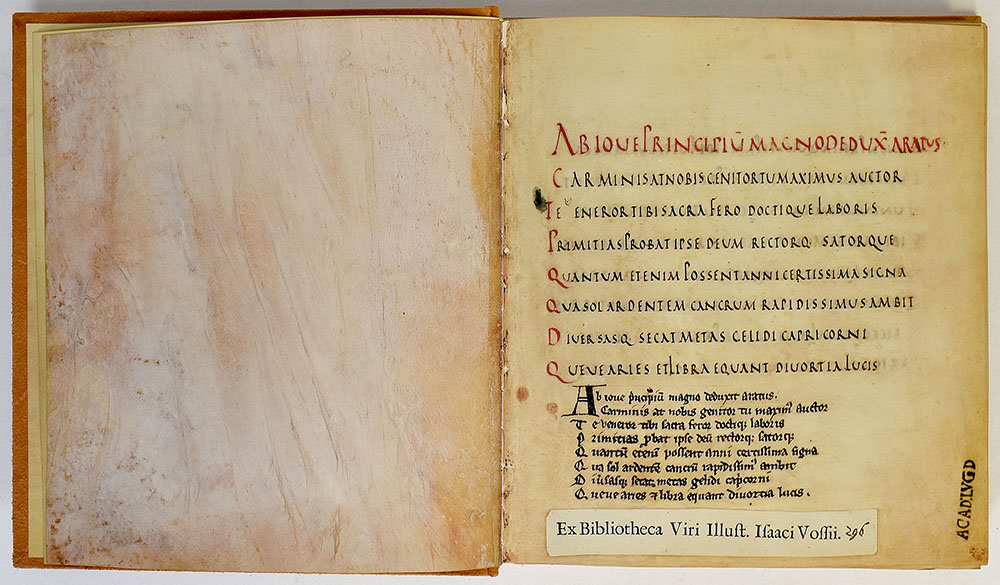 ABIOUEPRINCIPIŪMAGNODEDUX̄ARATUS·
CARMINISATNOBISGENITORTUMAXIMUS AUCTOR
TE UENERORTIBISACRAFERO DOCTIQUELABORIS
PRIMITIASPROBATIPSE DEUM RECTORQ· SATORQUE
QUANTUM ETENIM POSSENTANNICERTISSIMASIGNA
QUASOLARDENTEM CANCRUM RAPIDISSIMUSAMBIT
DIUERSASQ· SECATMETAS GELIDI CAPRICORNI
QUEVEARIES ETLIBRA EQUANT DIUORTIALUCIS
Ab ioue p͛ncipiū magno deduxit aratus.
Carminis at nobis genitor tu maximꝰ auctor
Te veneror tibi sacra feror doctiq; laboris
Primitias ꝓbat ipse deū rectorq; satorq;
Quantū etenī possent anni certissima signa
Qua sol ardentē cancrū rapidissimꝰ ambit
Diūsasq; secat metas gelidi cap͛corni
Queve aries ⁊ libra equant divortia lucis.
Ex Bibliotheca Viri Illuſt. Iſaaci Voſſii. 296
ACAD.LVGD